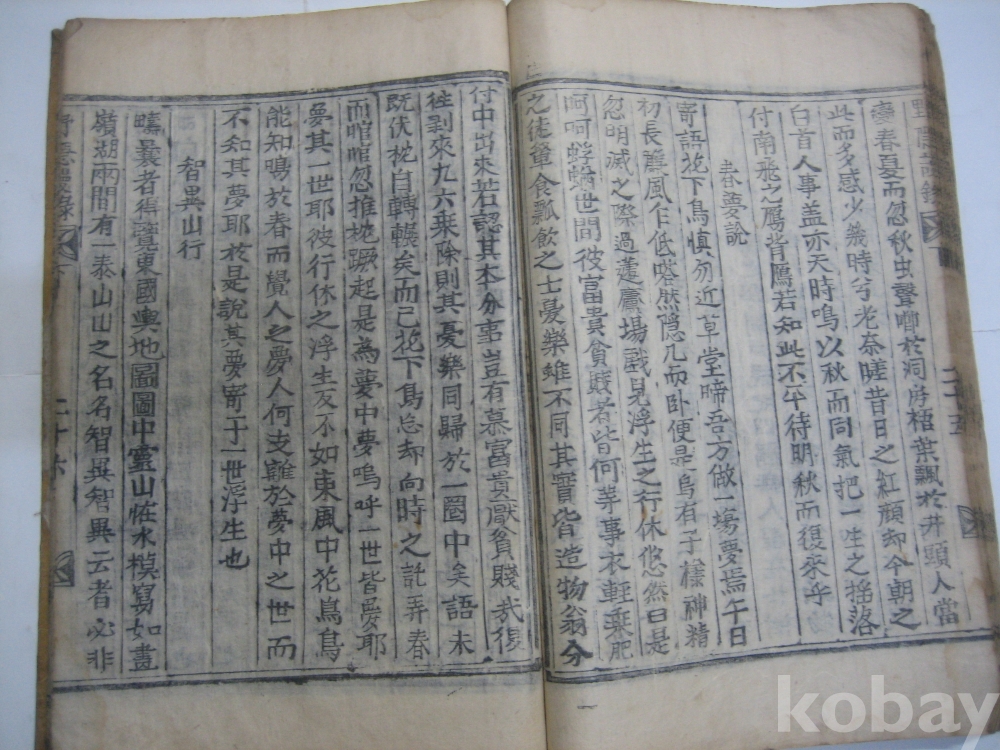 二十五
臺春夏而忽秋虫聲喞於洞房梧葉飄於井頭人當
此而多感少幾時兮老奈嗟昔日之紅顔却今朝之
白首人事盖亦天時鳴以秋而同氣把一生之摇落
付南飛之鴈背鴈若知此不平待明秋而復來乎
春夢說
寄語花下鳥愼勿近草堂啼吾方做一塲夢焉午日
初長薰風乍低嗒然隠几而卧便是烏有子樣神精
忽明滅之際過蘧廬塲戲見浮生之行休悠然曰是
呵呵蜉蝣世間彼富貴貧賤者皆何等事衣輕乘肥
之徒簞食瓢飮之士憂樂雖不同其實皆造物翁分
付中出來若認其本分事豈有慕富貴厭貧賤哉復
徃剥來九六乘除則其憂樂同歸於一圈中矣語未
既伏枕自轉輾矣而已花下鳥忘却向時之託弄春
而喧喧忽推枕蹶起是為夢中夢嗚呼一世皆夢耶
夢其一世耶彼行休之浮生反不如東風中花鳥鳥
能知鳴於春而覺人之夢人何支離於夢中之世而
不知其夢耶於是說其夢寄于一世浮生也
智異山行
疇曩者得覽東國輿地圖圖中靈山恠水模寫如畫
嶺湖兩間有一泰山山之名名智異智異云者必非
二十六
kobay